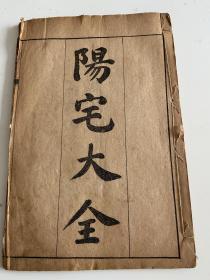 陽宅大全